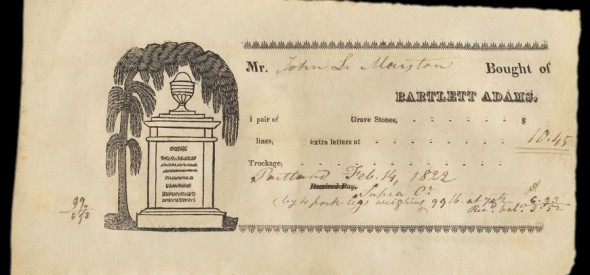 Mr. John L. Marston Bought of
BARTLETT ADAMS,
1 pair of Grave Stones, $
lines, extra letters at 10.45
Truckage,
Portland Feb. 14, 1822
Received Pay,
Supra Cr
by 4 pork legs weighing 99 lb. at
Rec. bal.